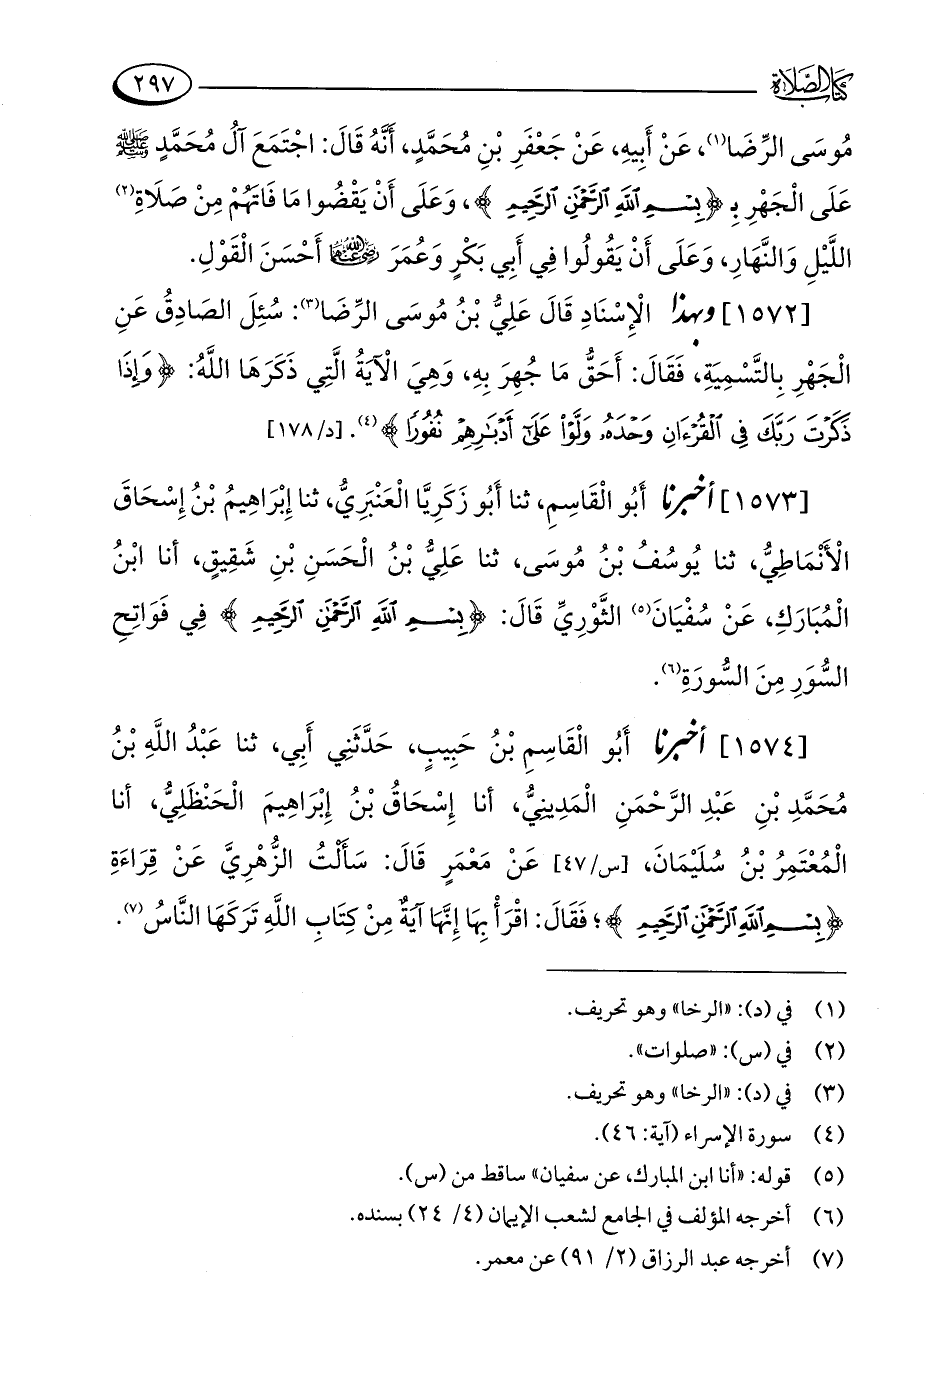 كتاب الصلاة ٢٩٧
مُوسَى الرِّضَا(١)، عَنْ أَبِيهِ، عَنْ جَعْفَرِ بْنِ مُحَمَّدٍ، أَنَّهُ قَالَ: اجْتَمَعَ آلُ مُحَمَّدٍ ﷺ
عَلَى الْجَهْرِ بِـ ﴿بِسْمِ اللَّهِ الرَّحْمَٰنِ الرَّحِيمِ﴾، وَعَلَى أَنْ يَقْضُوا مَا فَاتَهُمْ مِنْ صَلَاةِ(٢)
اللَّيْلِ وَالنَّهَارِ، وَعَلَى أَنْ يَقُولُوا فِي أَبِي بَكْرٍ وَعُمَرَ رَضِيَ اللَّهُ عَنْهُمَا أَحْسَنَ الْقَوْلِ.
[١٥٧٢] وبهذا الْإِسْنَادِ قَالَ عَلِيُّ بْنُ مُوسَى الرِّضَا(٣): سُئِلَ الصَّادِقُ عَنِ
الْجَهْرِ بِالتَّسْمِيَةِ، فَقَالَ: أَحَقُّ مَا جُهِرَ بِهِ، وَهِيَ الْآيَةُ الَّتِي ذَكَرَهَا اللَّهُ: ﴿وَإِذَا
ذَكَرْتَ رَبَّكَ فِي ٱلْقُرْءَانِ وَحْدَهُۥ وَلَّوْا۟ عَلَىٰٓ أَدْبَٰرِهِمْ نُفُورًا﴾(٤). [د/١٧٨]
[١٥٧٣] أخبرنا أَبُو الْقَاسِمِ، ثنا أَبُو زَكَرِيَّا الْعَنْبَرِيُّ، ثنا إِبْرَاهِيمُ بْنُ إِسْحَاقَ
الْأَنْمَاطِيُّ، ثنا يُوسُفُ بْنُ مُوسَى، ثنا عَلِيُّ بْنُ الْحَسَنِ بْنِ شَقِيقٍ، أنا ابْنُ
الْمُبَارَكِ، عَنْ سُفْيَانَ(٥) الثَّوْرِيِّ قَالَ: ﴿بِسْمِ اللَّهِ الرَّحْمَٰنِ الرَّحِيمِ﴾ فِي فَوَاتِحِ
السُّوَرِ مِنَ السُّورَةِ(٦).
[١٥٧٤] أخبرنا أَبُو الْقَاسِمِ بْنُ حَبِيبٍ، حَدَّثَنِي أَبِي، ثنا عَبْدُ اللَّهِ بْنُ
مُحَمَّدِ بْنِ عَبْدِ الرَّحْمَنِ الْمَدِينِيُّ، أنا إِسْحَاقُ بْنُ إِبْرَاهِيمَ الْحَنْظَلِيُّ، أنا
الْمُعْتَمِرُ بْنُ سُلَيْمَانَ، [س/٤٧] عَنْ مَعْمَرٍ قَالَ: سَأَلْتُ الزُّهْرِيَّ عَنْ قِرَاءَةِ
﴿بِسْمِ اللَّهِ الرَّحْمَٰنِ الرَّحِيمِ﴾؛ فَقَالَ: اقْرَأْ بِهَا إِنَّهَا آيَةٌ مِنْ كِتَابِ اللَّهِ تَرَكَهَا النَّاسُ(٧).
(١) في (د): «الرخا» وهو تحريف.
(٢) في (س): «صلوات».
(٣) في (د): «الرخا» وهو تحريف.
(٤) سورة الإسراء (آية: ٤٦).
(٥) قوله: «أنا ابن المبارك، عن سفيان» ساقط من (س).
(٦) أخرجه المؤلف في الجامع لشعب الإيمان (٤/ ٢٤) بسنده.
(٧) أخرجه عبد الرزاق (٢/ ٩١) عن معمر.